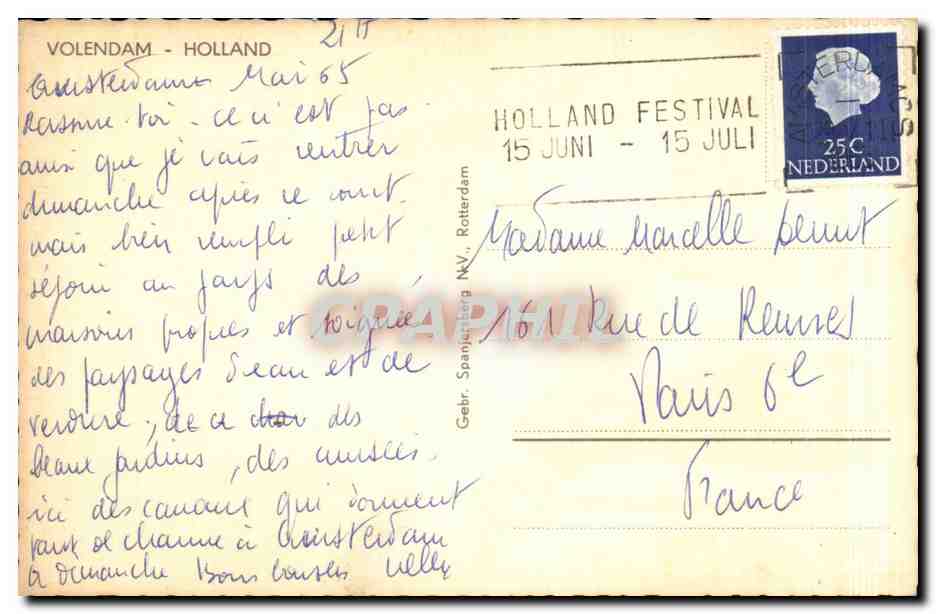 VOLENDAM - HOLLAND
Amsterdam Mai 65
Rassure-toi - ceci n'est pas
ainsi que je vais rentrer
dimanche après ce court
mais bien rempli petit
séjour au pays des
maisons propres et soignées
des paysages d'eau et de
verdure, de ce des
beaux jardins, des musées.
ici des canaux qui donnent
tant de charme à Amsterdam
à dimanche Bons baisers Nelly
Gebr. Spanjersberg N.V., Rotterdam
HOLLAND FESTIVAL
15 JUNI - 15 JULI
AMSTERDAM
25C
NEDERLAND
Madame Marcelle
161 Rue de Rennes
Paris 6e
France
CPAPHIL